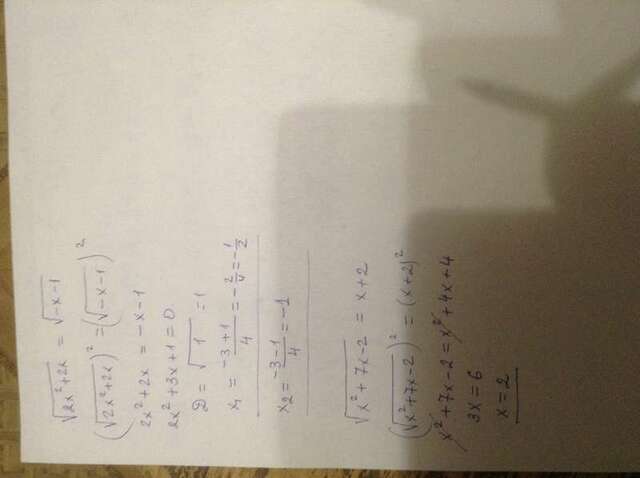 √(2x²+2x) = √(-x-1)
(√(2x²+2x))² = (√(-x-1))²
2x²+2x = -x-1
2x²+3x+1=0
D = √1 = 1
x₁ = (-3+1)/4 = -2/4 = -1/2
x₂ = (-3-1)/4 = -1
√(x²+7x-2) = x+2
(√(x²+7x-2))² = (x+2)²
x²+7x-2 = x²+4x+4
3x = 6
x = 2